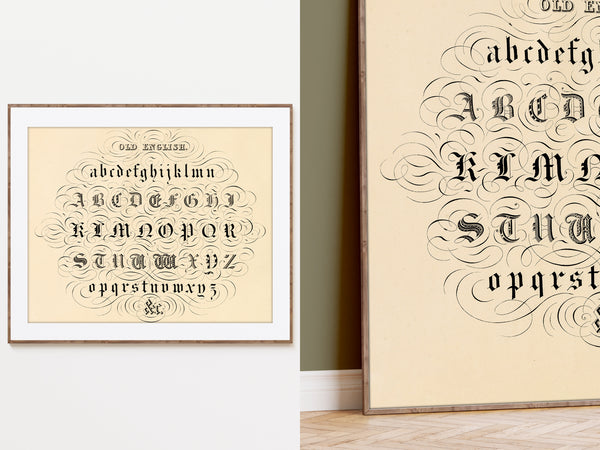 OLD ENGLISH.
abcdefghijklmn
A B C D E F G H I
K L M N O P Q R
S T U W X Y Z
opqrstuvwxyz
&c.
OLD EN
abcdefg
A B C D E
K L M N
S T U W
opqrst